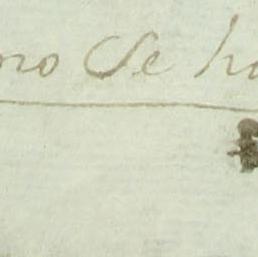 no se ha